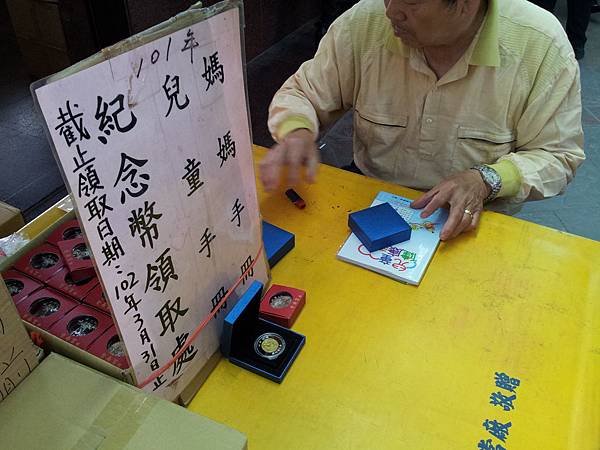 101年
媽媽手冊
兒童手冊
紀念幣領取處
截止領取日期：102年3月31日止
兒童
敬贈